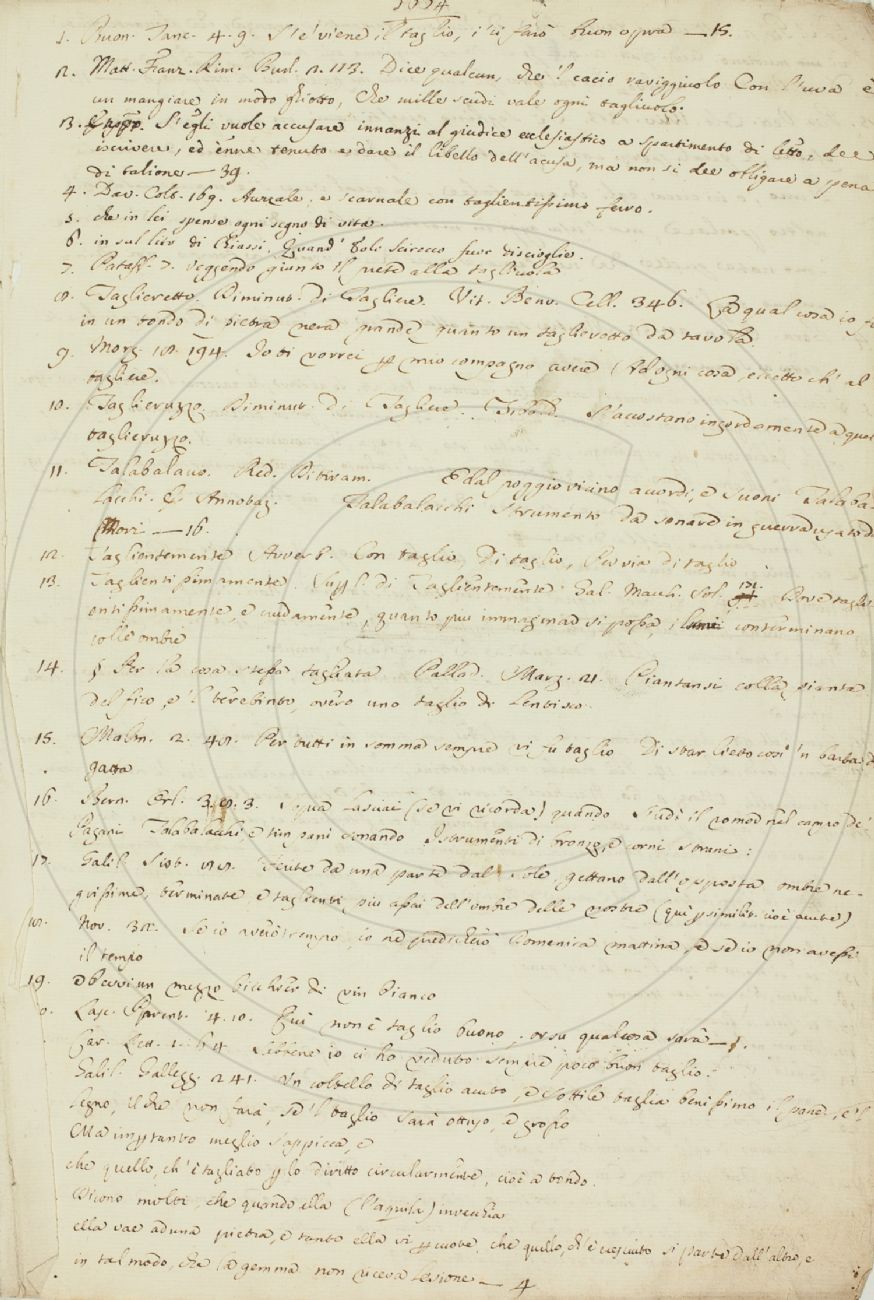 1. Buon. Tanc. 4. 9. S'e' viene il taglio, i' ti farò buon opra — 15.
2. Matt. Franz. Rim. Burl. 2. 113. Dice qualcun, che 'l cacio raviggiuolo Con l'uva è
un mangiare in modo ghiotto, Che mille scudi vale ogni tagliuolo.
3. S'egli vuole accusare innanzi al giudice ecclesiastico a spartimento di letto, dee
iscrivere, ed enne tenuto a dare il libello dell'acusa, ma non si dee obligare a pena
di talione — 39.
4. Dav. Colt. 169. e scarnale con taglientissimo ferro.
5. che in lei spense ogni segno di vita.
6. in sul lito di Chiassi, Quand' Eolo Scirocco fuor discioglie.
7. Pataff. 7. veggendo giunto il prete alla tagliuola
8. Taglieretto. Diminut. di Tagliere. Vit. Benv. Cell. 346. La qual cosa io
in un tondo di pietra nera grande quanto un taglieretto da tavola.
9. Morg. 18. 194. Io ti vorrei per mio compagno avere Ad ogni cosa, eccetto ch' al
tagliere.
10. Taglieruzzo. Diminut. di Tagliere. S'accostano ingordamente a quel
taglieruzzo.
11. Talabalacco. Red. Ditiram. E dal poggio vicino accordi, e suoni Talaba-
lacchi. Annotaz. Talabalacchi strumento da sonare in guerra usato da
Mori — 16.
12. Taglientemente Avverb. Con taglio, Di taglio, Per via di taglio
13. Taglientissimamente. Superl. di Taglientemente. Gal. Macch. Sol. 171. Dove tagli-
entissimamente, e crudamente, quanto più immaginar si possa, i lumi conterminano
colle ombre
14. § Per la cosa stessa tagliata Pallad. Marz. 21. Piantansi colla pianta
del fico, e 'l terebinto, overo uno taglio di lentisco
15. Malm. 2. 48. Per tutti in somma sempre vi fu taglio Di star lieto così 'n barba di
gatta
16. Bern. Orl. 3. 8. 3. Iqua lasciai (se vi ricorda) quando S'udì il romor nel campo de'
Pagani Talabalacchi, e timpani sonando Istrumenti di bronzo, e corni strani:
17. Galil. Sist. 88. vedute da una parte dal Sole, gettano dall'opposta ombre ne-
grissime, terminate, e taglienti più assai dell'ombre delle nostre (qui per similit. cioè acute)
18. Nov. 32. Se io averò tempo, io ne prederrò Domenica mattina, e se io non avessi
il tempo
19. e bevvi un mezzo bicchier di vin bianco
0. Lasc. Parent. 4. 10. Qui non è taglio buono, orsù qualcosa sarà — 1.
Car. Lett. 1. 64. Sebbene io ci ho veduto sempre poco buon taglio.
Galil. Gallegg. 241. Un coltello di taglio acuto, e sottile taglia benissimo il pane, e 'l
legno, il che non farà, se 'l taglio sarà ottuso, e grosso
Ma in per tanto meglio s'appicca, e
che quello, ch' è tagliato per lo diritto circularmente, cioè a tondo.
Dicono molti, che quando ella (l'aquila) invecchia
ella vae ad una pietra, e tanto ella vi percuote, che quello, ch' è cresciuto si parte dall'altro, e
in tal modo, che la gemma non riceva lesione — 4